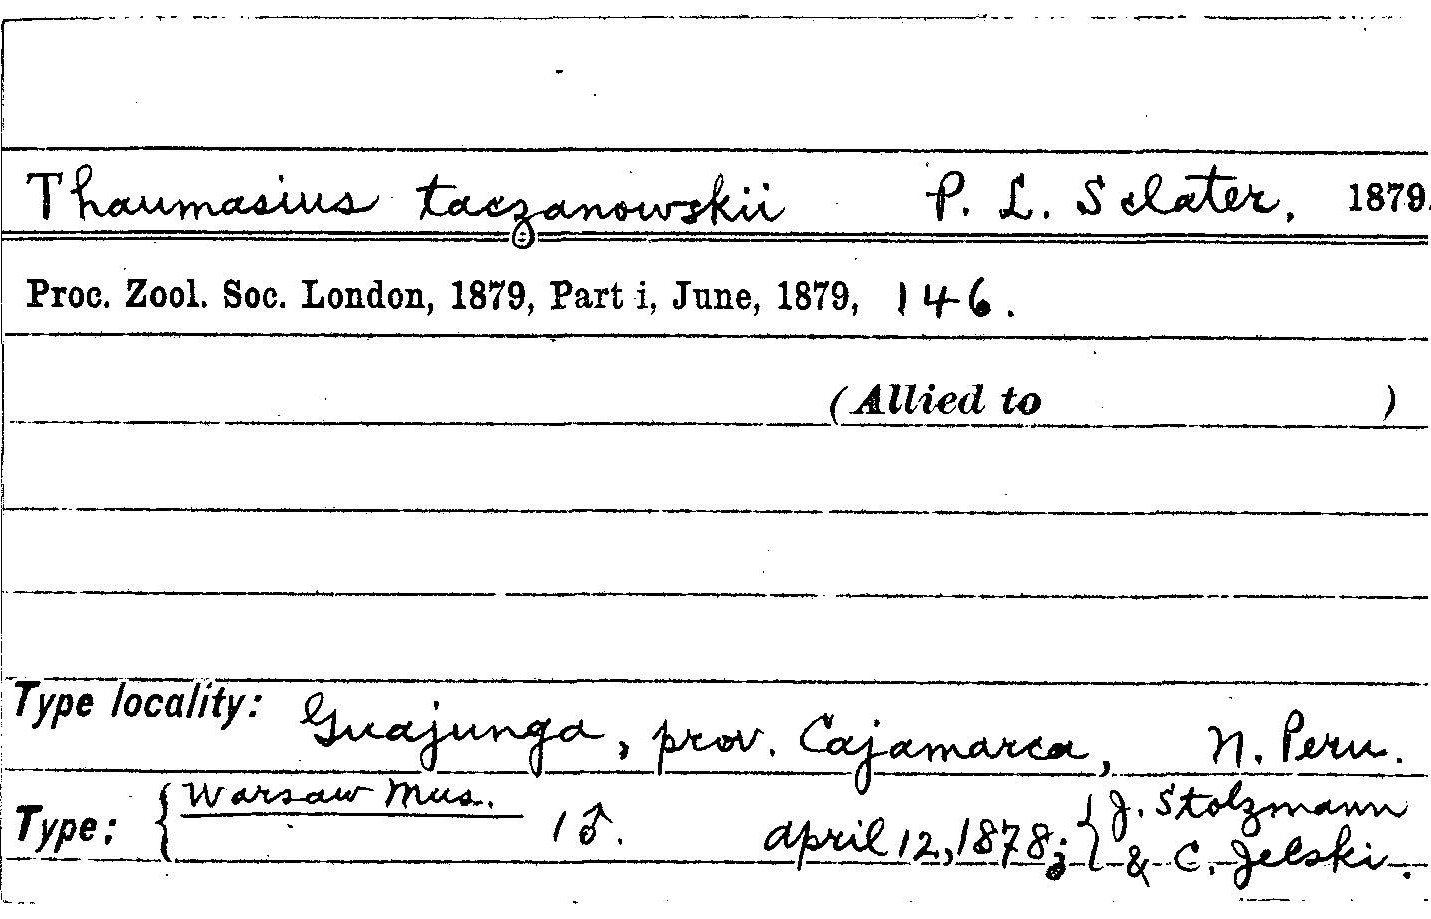 Thaumasius taczanowskii P. L. Sclater, 1879.
Proc. Zool. Soc. London, 1879, Part i, June, 1879, 146.
(Allied to )
Type locality: Guajunga, prov. Cajamarca, N. Peru.
Type: { Warsaw Mus. 1♂. April 12, 1878; { J. Stolzmann
& C. Jelski.